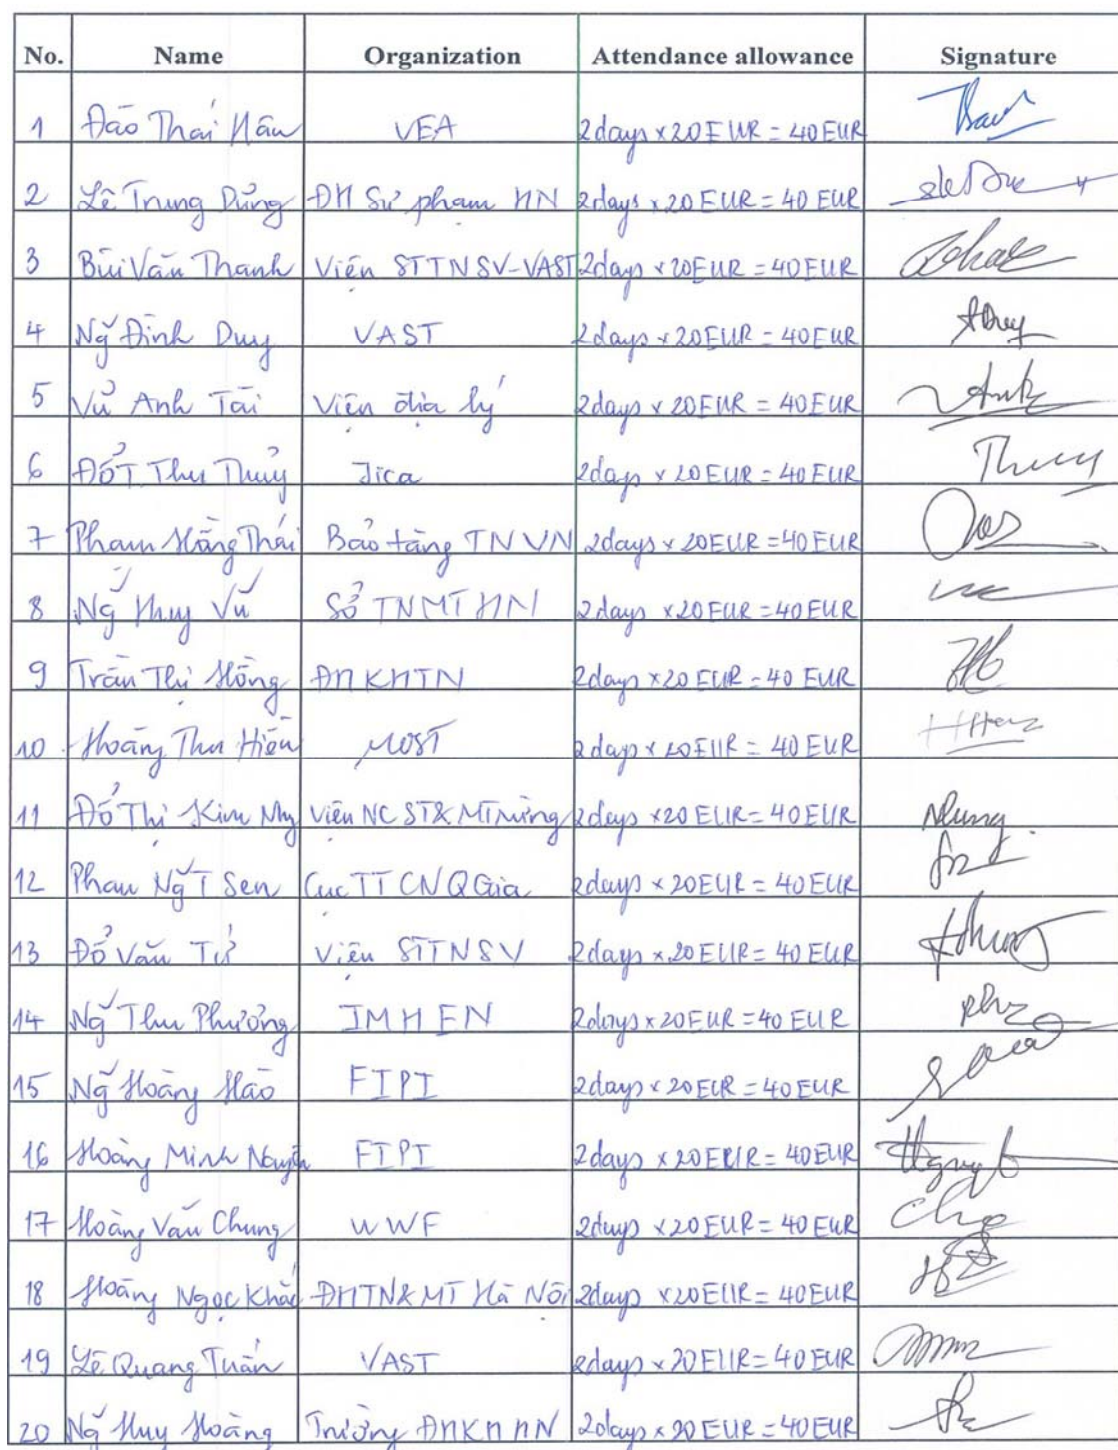 No. Name Organization Attendance allowance Signature
1 Đào Thái Hân VEA 2days x 20EUR = 40EUR
2 Lê Trung Dũng ĐH Sư phạm HN 2days x 20EUR = 40EUR
3 Bùi Văn Thanh Viện STTNSV-VAST 2days x 20EUR = 40EUR
4 Ng̃ Đình Duy VAST 2days x 20EUR = 40EUR
5 Vũ Anh Tài Viện địa lý 2days x 20EUR = 40EUR
6 Đỗ T Thu Thủy Jica 2days x 20EUR = 40EUR Thuy
7 Phạm Hồng Thái Bảo tàng TNVN 2days x 20EUR = 40EUR
8 Ng̃ Huy Vũ Sở TNMT HN 2days x 20EUR = 40EUR
9 Trần Thị Hồng ĐHKHTN 2days x 20EUR = 40EUR
10 Hoàng Thu Hiền MOST 2days x 20EUR = 40EUR
11 Đỗ Thị Kim Viện NC ST&MTrừng 2days x 20EUR = 40EUR Nhung
12 Phan Ng̃ T Sen Cục TT CNQGia 2days x 20EUR = 40EUR
13 Đỗ Văn Tứ Viện STTNSV 2days x 20EUR = 40EUR
14 Ng̃ Thu Phương IMHEN 2days x 20EUR = 40EUR
15 Ng̃ Hoàng Hào FIPI 2days x 20EUR = 40EUR
16 Hoàng Minh FIPI 2days x 20EUR = 40EUR
17 Hoàng Văn Chung WWF 2days x 20EUR = 40EUR
18 Hoàng Ngọc Khắc ĐHTN&MT Hà Nội 2days x 20EUR = 40EUR
19 Lê Quang Tuấn VAST 2days x 20EUR = 40EUR
20 Ng̃ Huy Hoàng Trường 2days x 20EUR = 40EUR